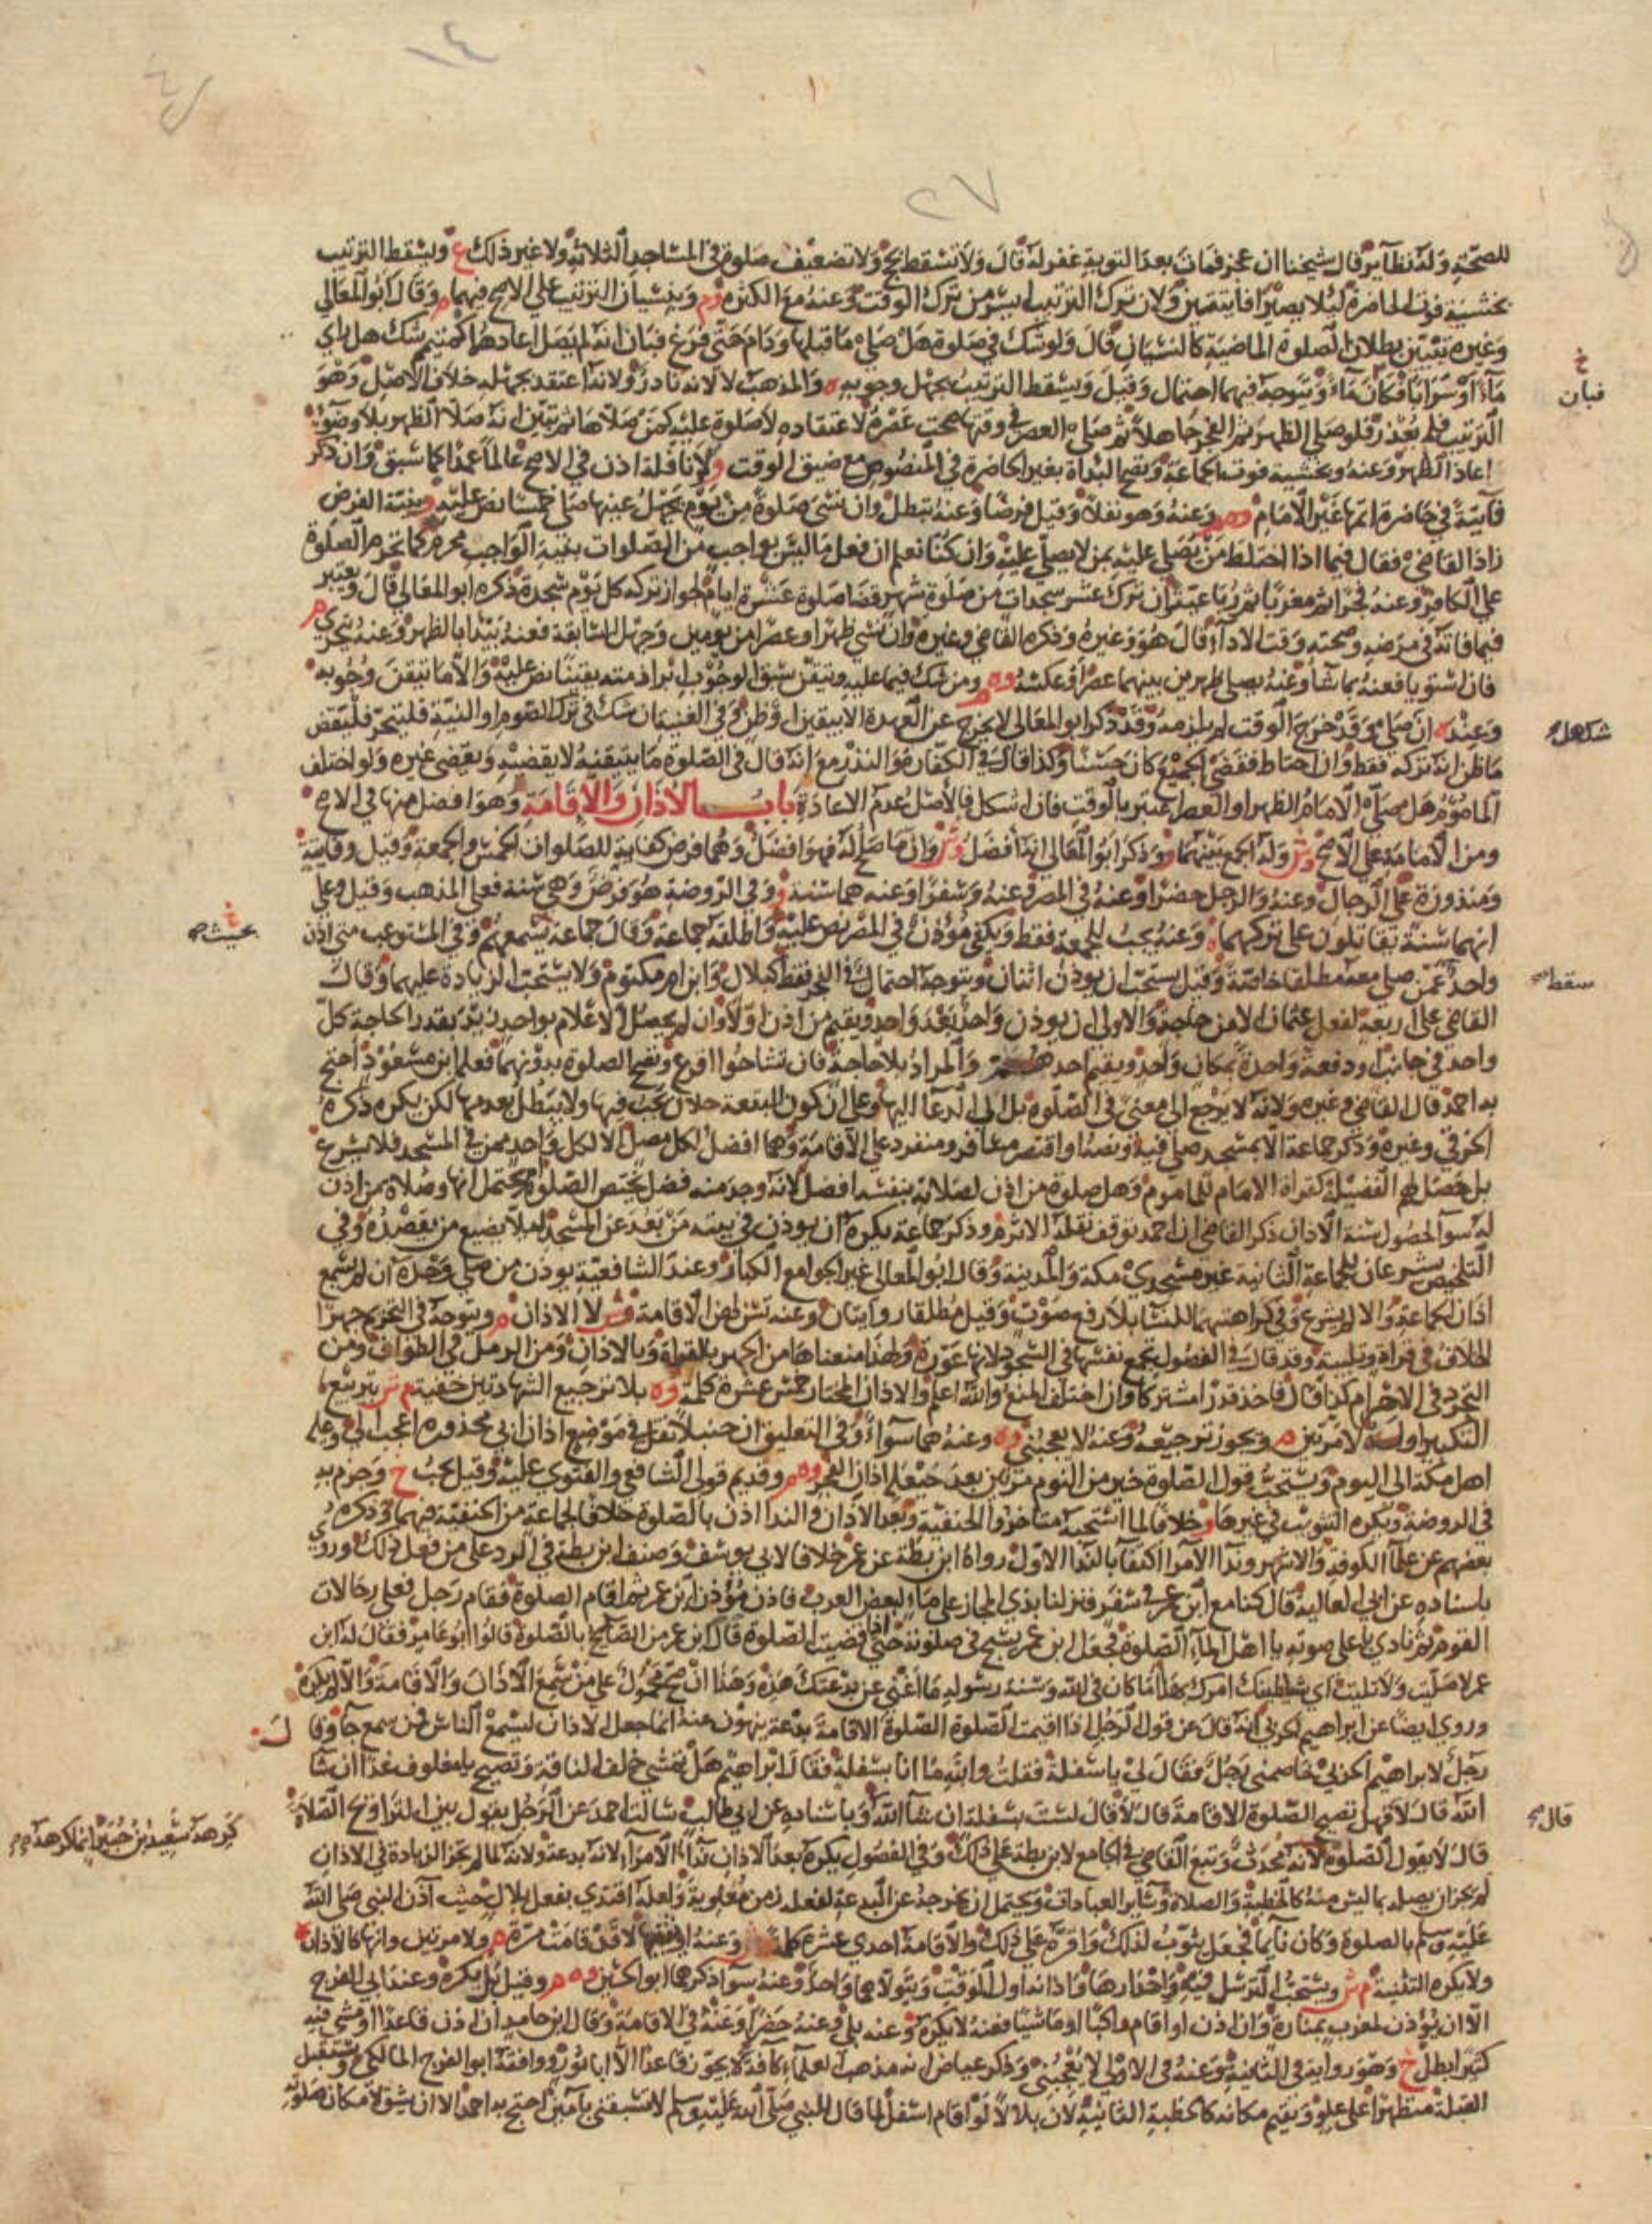 ١٤
٢٧
للصحة وله نظائر قال شيخنا ان عجز فمات بعد التوبة غفر له قال ولا تسقط بحج ولا تضعيف صلوة في المساجد الثلاثة ولا غير ذلك ع ويسقط الترتيب
بخشية فوت الحاضرة لئلا يصيرا فايتتين ولان ترك الترتيب ايسر من ترك الوقت وعنه مع الكثرة وم وبنسيان الترتيب على الاصح فيهما م وقال ابو المعالي
وغيره تبين بطلان الصلوة الماضية كالنسيان قال ولو شك في صلوة هل صلى ما قبلها ودام حتى فرغ فبان انه لم يصل اعادهما كمتيمم شك هل راي
فبان
ماء او سرابا فكان ماء ويتوجه فيهما احتمال وقيل ويسقط الترتيب بجهل وجوبه ه والمذهب لا لانه نادر ولانه اعتقد بجهله خلاف الاصل وهو
الترتيب فلم يعذر فلو صلى الظهر ثم الفجر جاهلا ثم صلى العصر في وقتها صحت عصره لاعتقاده لا صلوة عليه كمن صلاها ثم تبين انه صلا الظهر بلا وضوء
اعاد الظهر وعنه وبخشية فوت الجماعة وتصح البداة بغير الحاضرة في المنصوص مع ضيق الوقت ولا نافلة اذن في الاصح عالما عمدا كما سبق وان ذكر
فايتة في حاضرة اتمها غير الامام وعنه وهو نفلا وقيل فرضا وعنه تبطل وان نسي صلوة من يوم يجهل عينها صلى خمسا نص عليه بنية الفرض
زاد القاضي فقال فيما اذا اختلط من يصلى عليه بمن لا يصلى عليه وان كنا نعلم ان فعل ما ليس بواجب من الصلوات بنية الواجب محرم كما تحرم الصلوة
على الكافر وعنه فجرا ثم مغربا ثم رباعية وان ترك عشر سجدات من صلوة شهر قضا صلوة عشرة ايام لجواز تركه كل يوم سجدة ذكره ابو المعالي قال ويعتبر
فيما فاته في مرضه وصحته وقت الاداء قال هو وغيره وذكره القاضي وغيره وان نسي ظهرا وعصرا من يومين وجهل السابقة فعنه يبدا بالظهر وعنه يتحرى م
فان استويا فعنه بما شا وعنه يصلي ظهرين بينهما عصرا او عكسه وه م ومن شك فيما عليه وتيقن سبق الوجوب ابرا ذمته يقينا نص عليه والا ما تيقن وجوبه
شك هل
وعنه ان صلى وقد خرج الوقت لم يلزمه وقد ذكر ابو المعالي لا يخرج عن العهدة الا بيقين او ظن وفي الغنية ان شك في ترك الصوم او النية فليتحر فليقض
ما ظن انه تركه فقط وان احتاط فقضى الجميع كان حسنا وكذا قال في الكفارة والنذر مع انه قال في الصلوة ما يتيقنه لا يقضيه ويقضي غيره ولو اختلف
الماموم هل صلى الامام الظهر او العصر اعتبر بالوقت فان اشكل فالاصل عدم الاعادة باب الاذان والاقامة وهو افضل منها في الاصح
ومن الامامة على الاصح وش وله الجمع بينهما وذكر ابو المعالي انه افضل وش وان ما صلح له فهو افضل وهما فرض كفاية للصلوات الخمس والجمعة وقيل وفايتة
ومنذورة على الرجال وعنه والرجل حضرا وعنه في المصر وعنه وسفرا وعنه هما سنة و وفي الروضة هو فرض وهي سنة فعلى المذهب وقيل وعلى
بحيث صح
انهما سنة يقاتلون على تركهما ه وعنه يجب للجمعة فقط ويكفي مؤذن في المصر نص عليه واطلقه جماعة وقال جماعة يسمعهم وفي المستوعب متى اذن
سقط
واحد عمن صلى معه مطلقا خاصة وقيل يستحب ان يوذن اثنان ويتوجه احتمال في الفجر فقط كبلال وابن ام مكتوم ولا يستحب الزيادة عليهما وقال
القاضي على اربعة لفعل عثمان الا من حاجة والاولى ان يوذن واحد بعد واحد ويقيم من اذن اولا وان لم يحصل الاعلام بواحد زيد بقدر الحاجة كل
واحد في جانب او دفعة واحدة بمكان واحد ويقيم احدهم والمراد بلا حاجة فان تشاحوا اقرع وتصح الصلوة بدونهما فعله ابن مسعود احتج
به احمد قال القاضي وغيره ولانه لا يرجع الى معنى في الصلوة بل الى الدعا اليها وعلى ان كون البقعة حلالا يجب فيها ولا يبطل بعدمها لكن يكره ذكره
الخرقي وغيره وذكر جماعة الا بمسجد صلي فيه ونصه او اقتصر مسافر ومنفرد على الاقامة وهما افضل لكل مصل الا لكل واحد ممن في المسجد فلا يشرع
بل حصل لهم الفضيلة كقراة الامام للماموم وهل صلوة من اذن لصلاته بنفسه افضل لانه وجد منه فضل يختص الصلوة ام يحتمل انها وصلاة من اذن
له سوا لحصول سنة الاذان ذكر القاضي ان احمد توقف نقله الاثرم وذكر جماعة يكره ان يوذن في بيته من بعد عن المسجد لئلا يضيع من يقصده وفي
التلخيص يشرعان للجماعة الثانية غير مسجدي مكة والمدينة وقال ابو المعالي غير الجوامع الكبار وعند الشافعية يوذن من صلى وحده ان لم يسمع
اذان الجماعة والا لم يشرع وفي كراهتهما للنسا بلا رفع صوت وقيل مطلقا روايتان وعنه تسن لهن الاقامة وش لا الاذان م ويتوجه في التحريم جهرا
الخلاف في قراة وتلبية وقد قال في الفصول تجمع نفسها في السجود لانها عورة ولهذا منعناها من الجهر بالقراة وبالاذان ومن الرمل في الطواف ومن
التجرد في الاحرام كذا قال فاخذ قدرا مشتركا وان اختلف المنع والله اعلم والاذان المختار خمس عشرة كلمة وه بلا ترجيع الشهادتين خفية م ش بتربيع
التكبير اوله لا مرتين م ويجوز ترجيعه وعنه لا يعجبني وه وعنه هما سواء وفي التعليق ان حنبلا نقل في موضع اذان ابي محذورة اعجب الي وعليه
اهل مكة الى اليوم ويستحب قول الصلوة خير من النوم مرتين بعد حيعلة اذان الفجر وه م وقديم قولي الشافعي والفتوى عليه وقيل يجب ح وجزم به
في الروضة ويكره التثويب في غيرها و خلافا لما استحبه متاخروا الحنفية وبعد الاذان والندا اذن بالصلوة خلافا لجماعة من الحنفية فيهما وذكره
بعضهم عن علماء الكوفة والاشهر وندا الامرا اكتفا بالندا الاول رواه ابن بطة عن عمر خلافا لابي يوسف وصنف ابن بطة في الرد على من فعل ذلك وروى
باسناده عن ابي العالية قال كنا مع ابن عمر في سفر فنزلنا بذي المجاز على ماء لبعض العرب فاذن مؤذن ابن عمر ثم اقام الصلوة فقام رجل فعلى رحالات
القوم ثم نادى باعلى صوته يا اهل الماء الصلوة فجعل ابن عمر يسبح في صلوته حتى اذا قضيت الصلوة قال ابن عمر من الصايح بالصلوة قالوا ابو عامر فقال له ابن
عمر لا صليت ولا تليت اي شيطانك امرك بهذا اما كان في الله وسنة رسوله ما اغنى عن بدعتك هذه وهذا ان صح محمول على من سمع الاذان والاقامة والا لم يكره
وروى ايضا عن ابراهيم الحربي انه قال عن قول الرجل اذا اقيمت الصلوة الصلوة الاقامة بدعة ينهون عنه انما جعل الاذان ليسمع الناس فمن سمع جا وقا
ل
رجل لابراهيم الحربي خاصمني رجل فقال لي يا سفلة فقلت والله ما انا بسفلة فقال ابراهيم هل تمشي خلف الناقة وتصيح يا معلوف غدا ان شا
قال
الله قال لا قيل تصيح الصلوة الاقامة قال لا قال لست بسفلة ان شا الله وباسناده عن ابي طالب سالت احمد عن الرجل يقول بين التراويح الصلاة
كرهه سعيد بن جبير انما كرهه
قال لا يقول الصلوة لانه محدث وتبع القاضي في الجامع لابن بطة على ذلك وفي الفصول يكره بعد الاذان نداء الامراء لانه بدعة ولانه لما لم تجز الزيادة في الاذان
لم يجز ان يصله بما ليس منه كالخطبة والصلاة وساير العبادات ويحتمل ان يخرجه عن البدعة لفعله زمن معاوية ولعله اقتدى بفعل بلال حيث آذن النبي صلى الله
عليه وسلم بالصلوة وكان نايما فجعل يثوب لذلك واقره على ذلك والاقامة احدى عشرة كلمة وعنه او ثنتها لا قد قامت مرة م ولا مرتين وانها كالاذان
ولا يكره التثنية م ش ويستحب الترسل فيه واحدارها واذانه اول الوقت ويتولاهما واحد وعنه سوا ذكرها ابو الحسين وه م وقيل بل يكره وعند ابي الفرج
الا ان يؤذن لمغرب بمنارة وان اذن او اقام راكبا او ماشيا فعنه لا يكره وعنه بلى وعنه حضرا وعنه في الاقامة وقال ابن حامد ان اذن قاعدا او مشى فيه
كثيرا بطل خ وهو رواية في الثانية وعنه في الاول لا يعجبني وذكر عياض انه مذهب العلماء كافة لا يجوز قاعدا الا ابا ثور ووافقه ابو الفرج المالكي ويستقبل
القبلة متطهرا على علو ويقيم مكانه كالخطبة الثانية لان بلالا لو اقام اسفل لما قال للنبي صلى الله عليه وسلم لا تسبقني بآمين احتج به احمد الا ان يشق لامكان صلوته